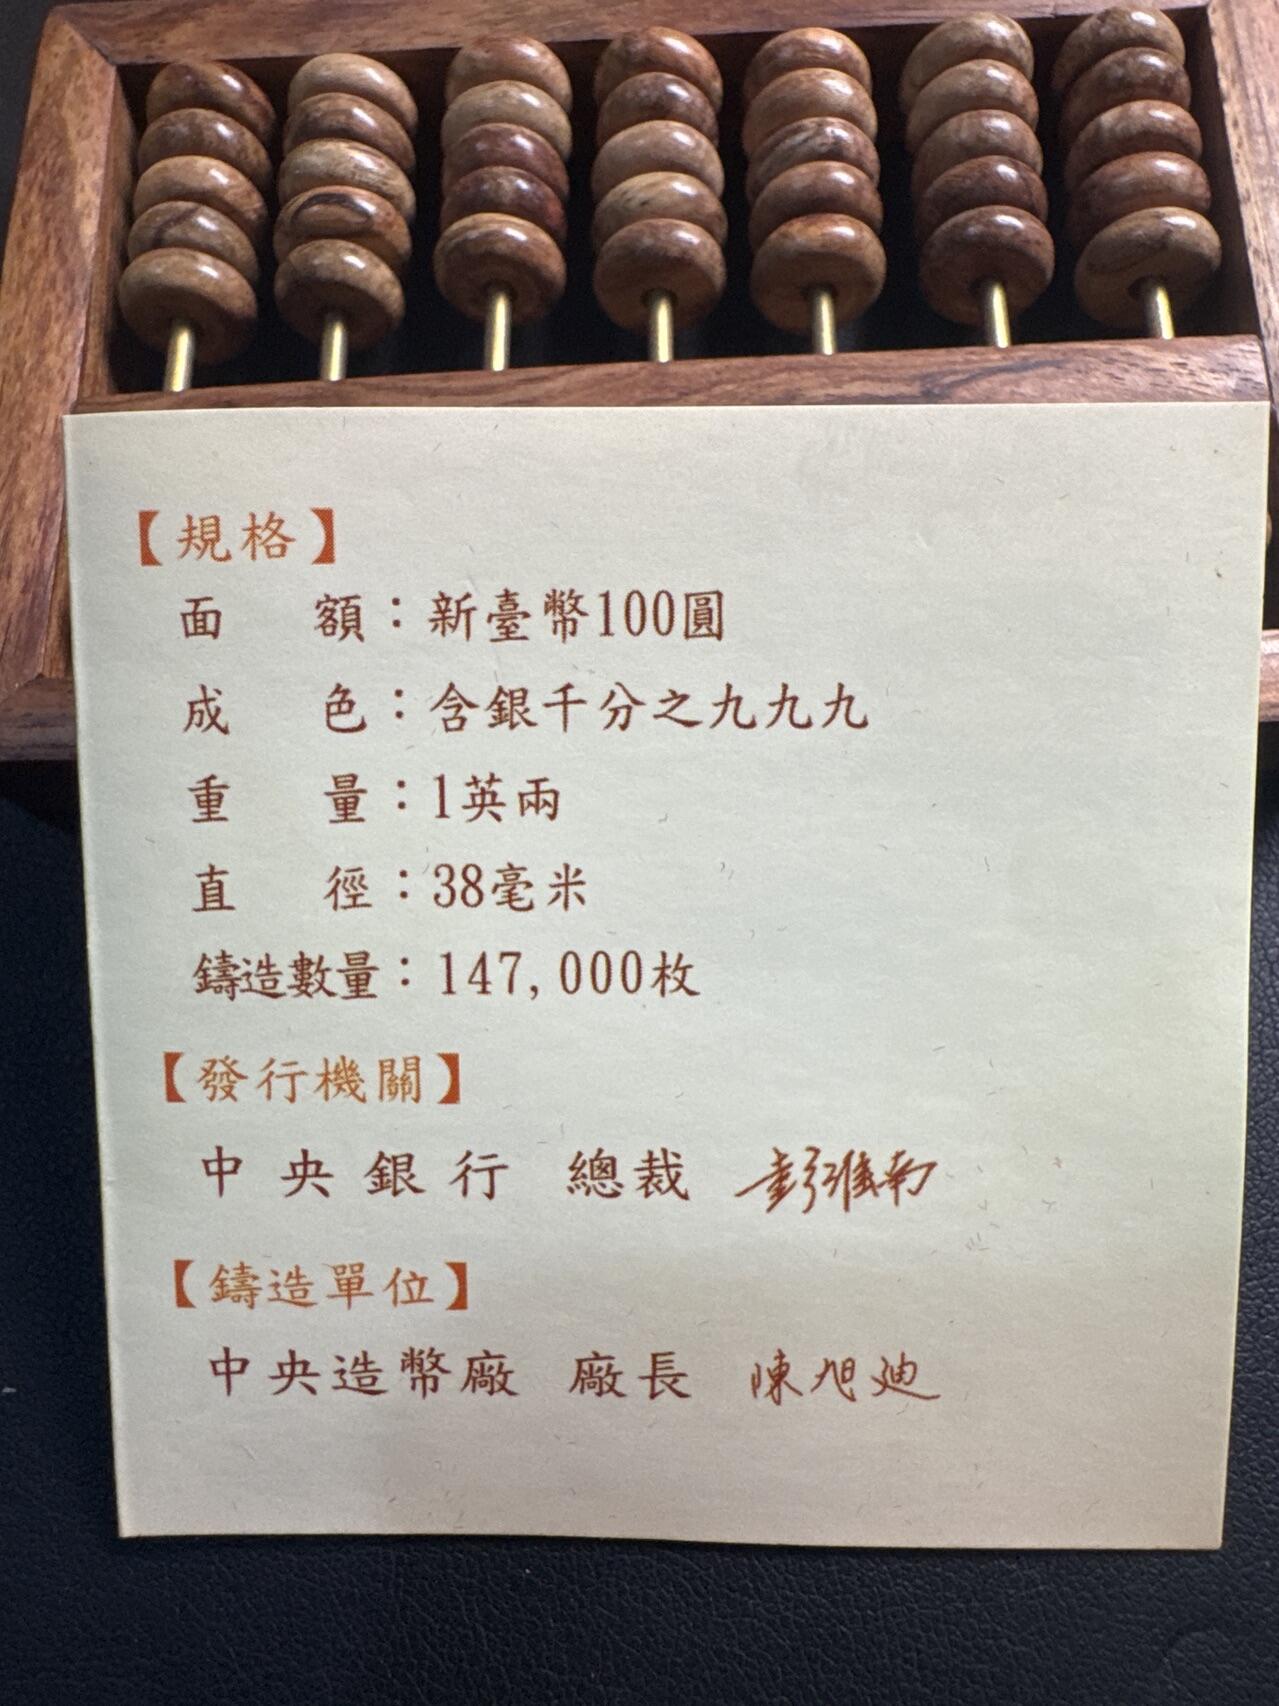 【規格】
面額：新臺幣100圓
成色：含銀千分之九九九
重量：1英兩
直徑：38毫米
鑄造數量：147,000枚
【發行機關】
中央銀行 總裁 彭淮南
【鑄造單位】
中央造幣廠 廠長 陳旭迪